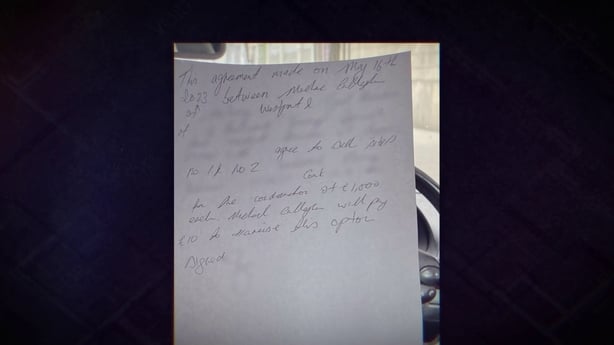 This agreement made on May 16th
2023 between Michael Callaghan
of Westport &
of
agree to sell sites
no 1 & no 2
for the consideration of €1,000
each. Michael Callaghan will pay
€10 to exercise this option
Signed